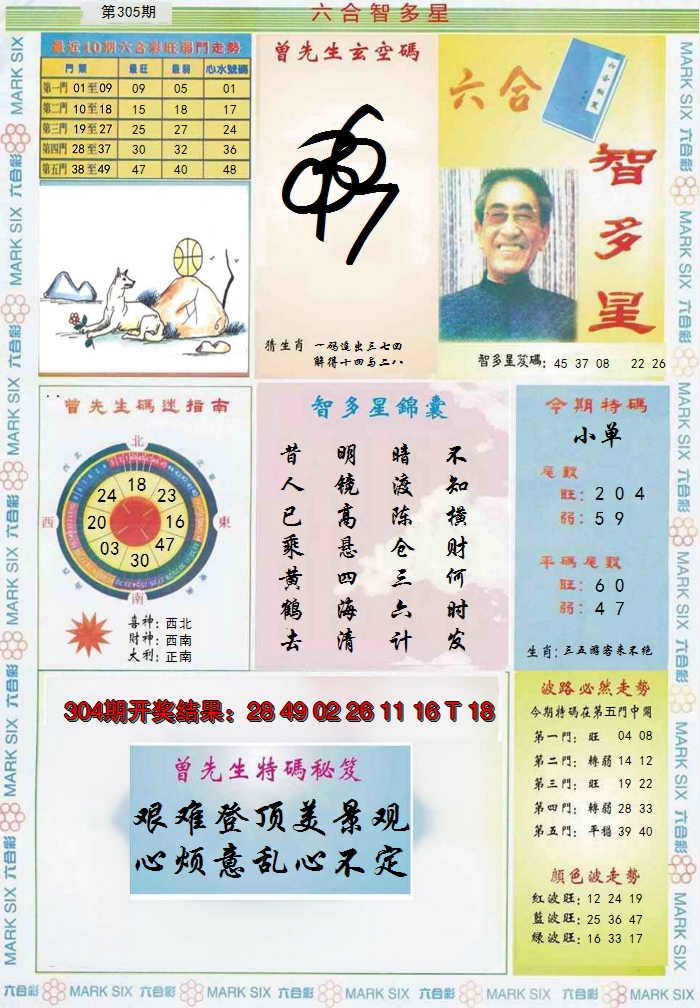 第305期
六合智多星
最近10期六合彩旺弱門走勢
門類 最旺 最弱 心水號碼
第一門 01至09 09 05 01
第二門 10至18 15 18 17
第三門 19至27 25 27 24
第四門 28至37 30 32 36
第五門 38至49 47 40 48
曾先生玄空碼
猜生肖 一码追出三七四
解得十四与二八
六合
六合秘笈
智多星
智多星笈碼: 45 37 08 22 26
曾先生碼迷指南
北
西
東
南
西北
東北
西南
東南
18
23
16
47
30
03
20
24
喜神: 西北
財神: 西南
大利: 正南
智多星錦囊
昔人已乘黄鹤去
明镜高悬四海清
暗渡陈仓三六计
不知横财何时发
今期特碼
小单
尾數
旺: 2 0 4
弱: 5 9
平碼尾數
旺: 6 0
弱: 4 7
生肖: 三五游客来不绝
304期开奖结果: 28 49 02 26 11 16 T 18
曾先生特碼秘笈
艰难登顶美景观
心烦意乱心不定
波路必然走勢
今期特碼在第五門中開
第一門: 旺 04 08
第二門: 轉弱 14 12
第三門: 旺 19 22
第四門: 轉弱 28 33
第五門: 平穩 39 40
顏色波走勢
紅波旺: 12 24 19
藍波旺: 25 36 47
绿波旺: 16 33 17
六合彩 MARK SIX 六合彩 MARK SIX 六合彩 MARK SIX 六合彩 MARK SIX 六合彩